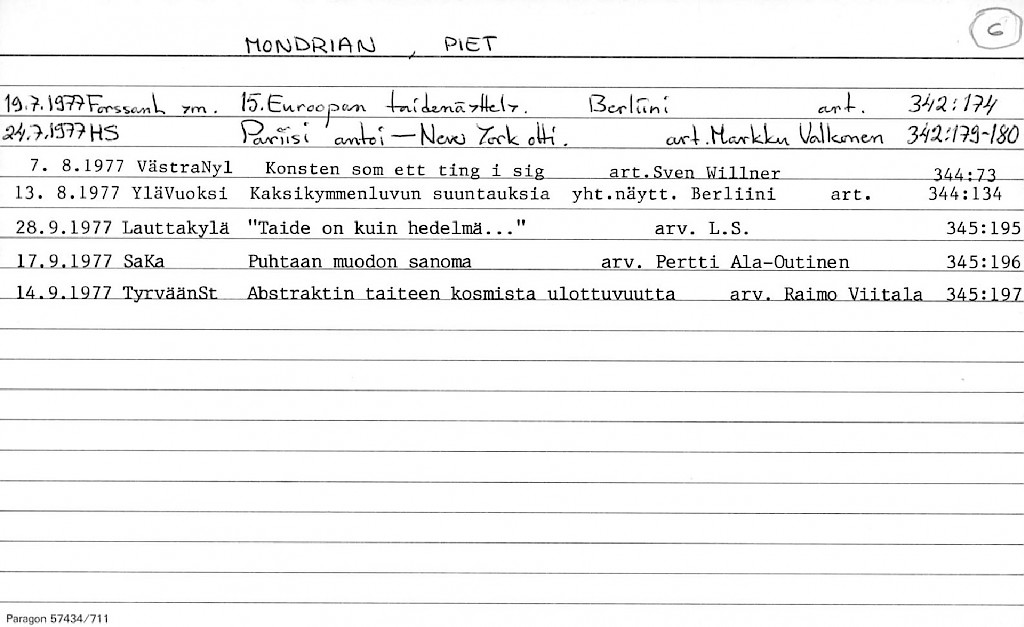 6
MONDRIAN, PIET
19.7.1977 Forssanl ym. 15. Euroopan taidenäyttely. Berliini art. 342:174
24.7.1977 HS Pariisi antoi - New York otti. art. Markku Valkonen 342:179-180
7. 8.1977 VästraNyl Konsten som ett ting i sig art.Sven Willner 344:73
13. 8.1977 YläVuoksi Kaksikymmenluvun suuntauksia yht.näytt. Berliini art. 344:134
28.9.1977 Lauttakylä "Taide on kuin hedelmä..." arv. L.S. 345:195
17.9.1977 SaKa Puhtaan muodon sanoma arv. Pertti Ala-Outinen 345:196
14.9.1977 TyrväänSt Abstraktin taiteen kosmista ulottuvuutta arv. Raimo Viitala 345:197
Paragon 57434/711